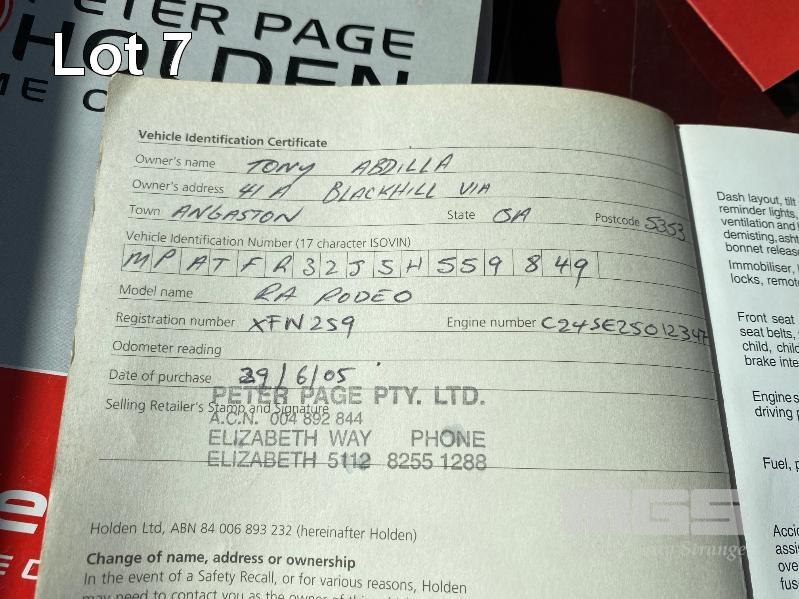 PETER PAGE
HOLDEN
Lot 7
Vehicle Identification Certificate
Owner's name TONY ABDILLA
Owner's address 41 A BLACKHILL VIA
Town ANGASTON State SA Postcode 5353
Vehicle Identification Number (17 character ISOVIN)
MPATFR32J5H559849
Model name RA RODEO
Registration number XFW259 Engine number C24SE25012347
Odometer reading
Date of purchase 29/6/05
Selling Retailer's Stamp and Signature
PETER PAGE PTY. LTD.
A.C.N. 004 892 844
ELIZABETH WAY PHONE
ELIZABETH 5112 8255 1288
Holden Ltd, ABN 84 006 893 232 (hereinafter Holden)
Change of name, address or ownership
In the event of a Safety Recall, or for various reasons, Holden
may need to contact you as the owner of this
Dash layout, tilt
reminder lights,
ventilation and
demisting, asht
bonnet release
Immobiliser,
locks, remot
Front seat
seat belts,
child, child
brake inte
Engines
driving
Fuel, p
Accid
assis
over
fuse
MGS
Strange